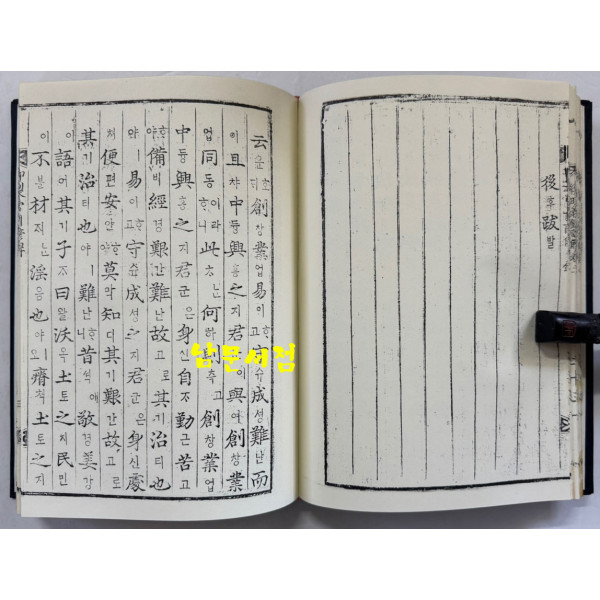 後후跋발
云운호ᄃᆡ創창業업易이ᄒᆞ고守슈成셩難난而
이且챠中듕興흥之지君군이與여創창業
업同동이라此ᄎᆞᄂᆞᆫ何하則즉고創창業업
中듕興흥之지君군은身신自ᄌᆞ勤근苦고
ᄒᆞ야備비經경艱간難난故고로其기治티也
야ㅣ易이ᄒᆞ고守슈成셩之지君군은身신處
쳐便편安안ᄒᆞ야莫막知디其기艱간故고로
其기治티也야ㅣ難난ᄒᆞ니昔셕애敬경姜강
이語어其기子ᄌᆞ曰왈沃옥土토之지民민
이不블材ᄌᆡᄂᆞᆫ淫음也야ㅣ오瘠쳑土토之지
남문서점